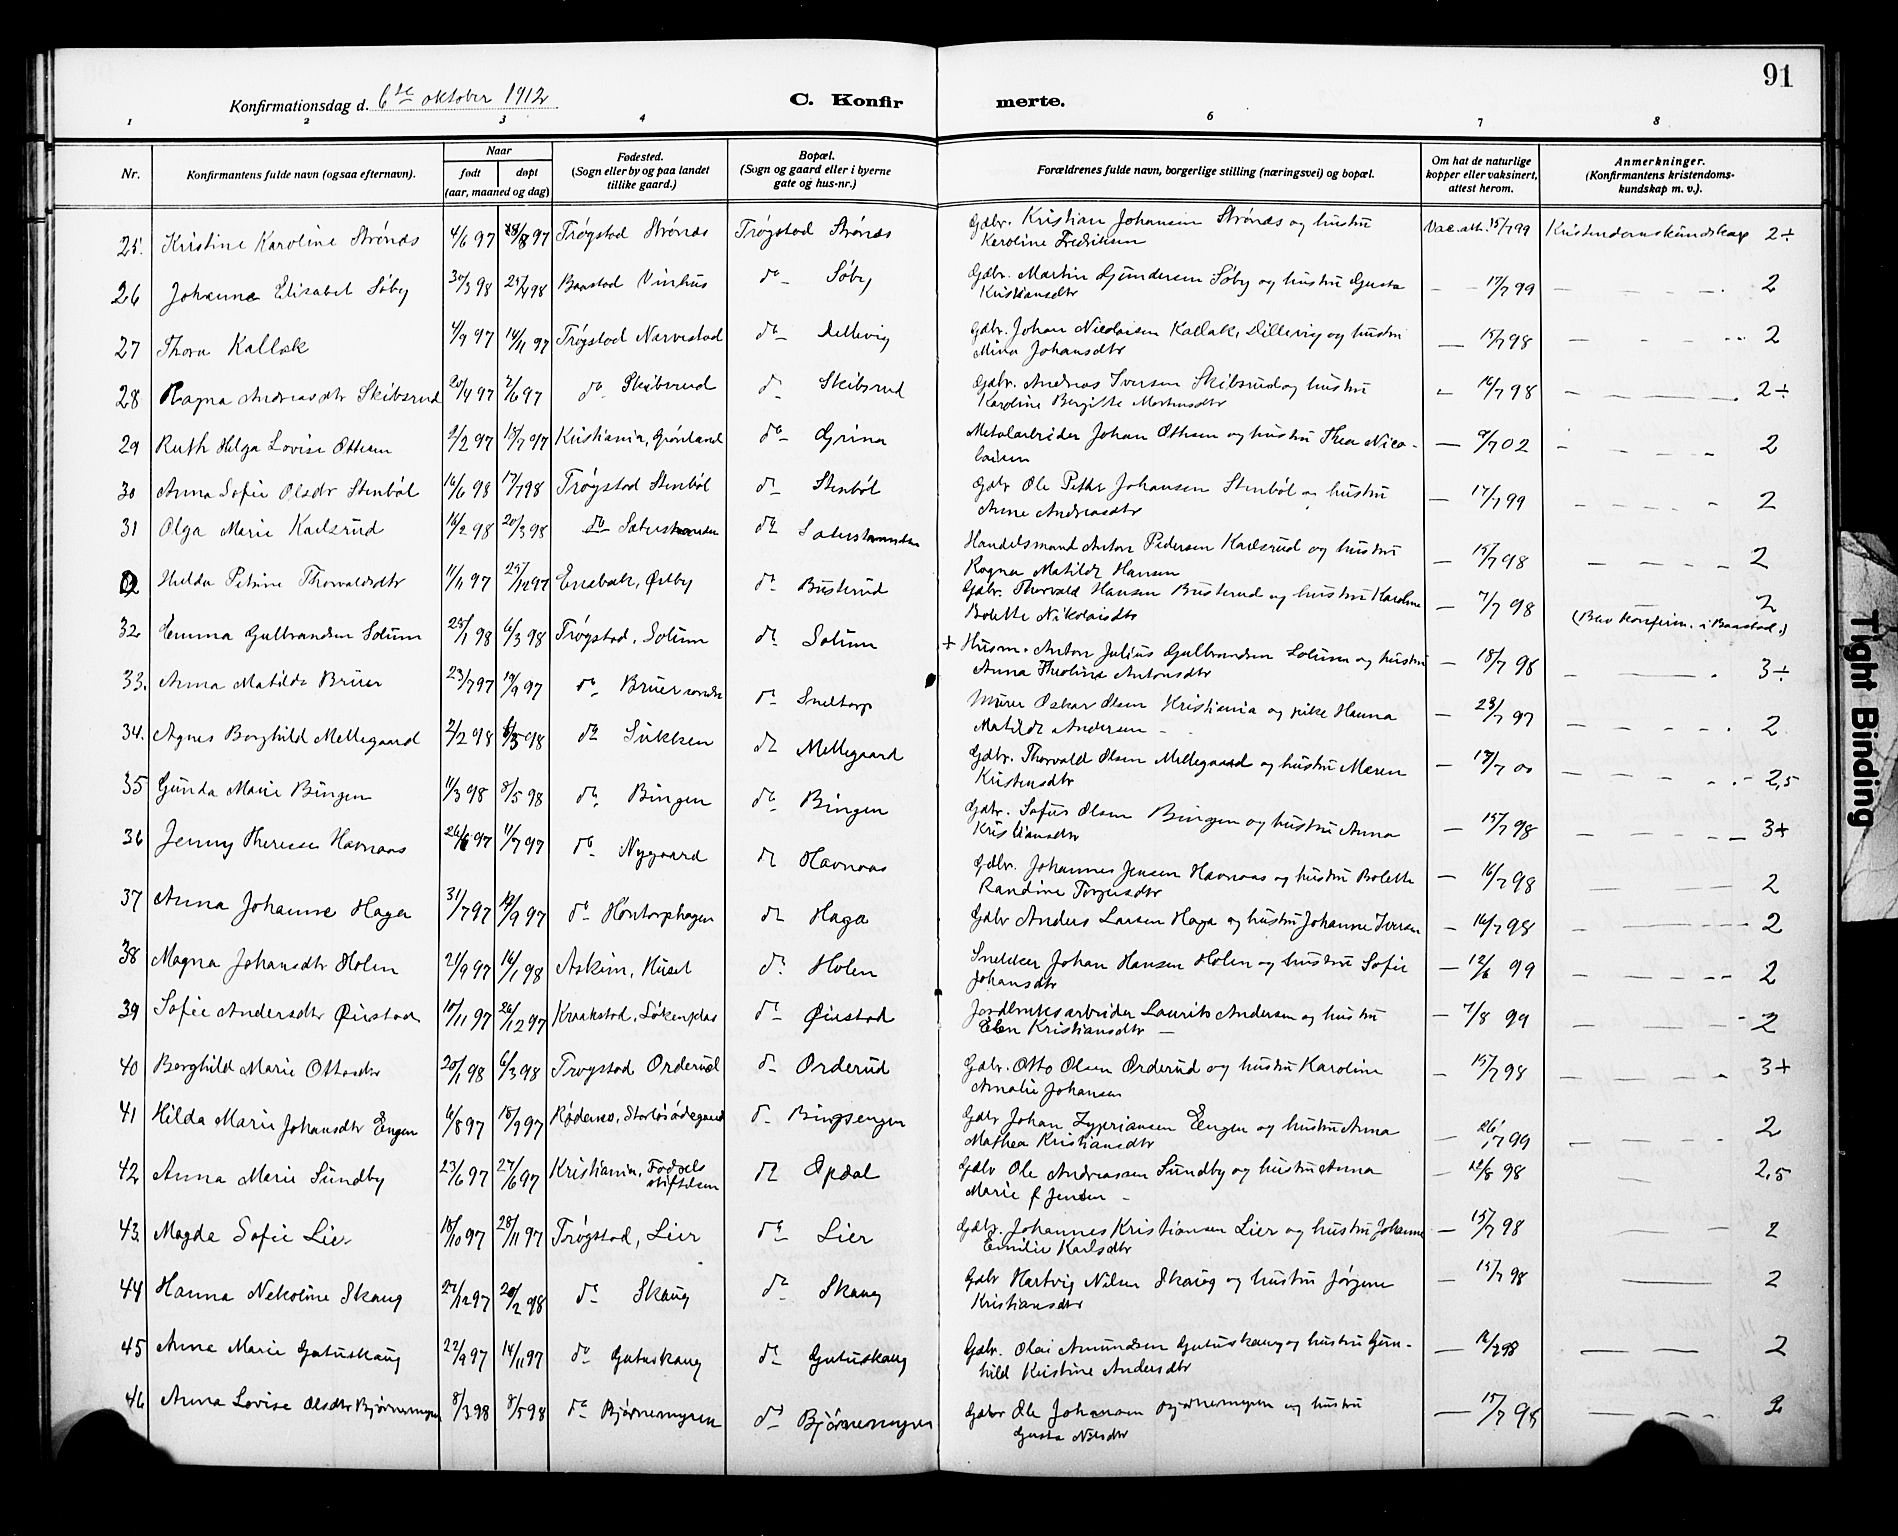 91
Konfirmationsdag d. 6te oktober 1912
C. Konfirmerte.
1 2 3 4 6 7 8
Nr.
Konfirmantens fulde navn (ogsaa efternavn).
Naar
født døpt
(aar, maaned og dag)
Fødested.
(Sogn eller by og paa landet
tillike gaard.)
Bopæl.
(Sogn og gaard eller i byerne
gate og hus-nr.)
Forældrenes fulde navn, borgerlige stilling (næringsvei) og bopæl.
Om hat de naturlige
kopper eller vaksinert,
attest herom.
Anmerkninger.
(Konfirmantens kristendoms-
kundskap m. v.).
25. Kristine Karoline Strønes 4/6 97 /8 97 Trøgstad Strønes Trøgstad Strønes Gdbr. Kristian Johansen Strønes og hustru Vac. att. 15/7 99 Kristendomskundskap 2÷
Karoline Fredriksen
26 Johanne Elisabet Søby 30/3 98 25/4 98 Baastad Vinhus do Søby Gdbr. Martin Gundersen Søby og hustru Gusta — 17/7 99 — 2
Kristiansdtr
27 Thora Kallak 4/9 97 14/11 97 Trøgstad Narvestad do Dillevig Gdbr. Johan Nicolaisen Kallak, Dillevig og hustru — 15/7 98 — 2
Mina Johansdtr
28 Ragna Andreasdtr Skibsrud 20/4 97 7/6 97 do Skibsrud do Skibsrud Gdbr. Andreas Iversen Skibsrud og hustru — 16/7 98 — 2÷
Karoline Bergitte
29 Ruth Helga Lovise Ottesen 9/2 97 18/7 97 Kristiania, Grønland do Grina Metalarbeider Johan Ottesen og hustru Thea Nico- — 9/7 02 — 2
laisen
30 Anna Sofie Olsdtr Stenbøl 16/6 98 17/7 98 Trøgstad Stenbøl do Stenbøl Gdbr Ole Petter Johansen Stenbøl og hustru — 17/7 99 — 2
Anne Andreasdtr
31 Olga Marie Karlsrud 16/2 98 20/3 98 do do Handelsmand Anton Pedersen Karlsrud og hustru — 15/7 98 — 2
Ragna Matilde Hansen
Hilda Petrine Thorvaldsdtr 11/11 97 25/12 97 Enebak, Østby do Busterud Gdbr. Thorvald Hansen Busterud og hustru Karoline — 7/7 98 2
Bolette Nikolaisdtr (Blev konfirm. i Baastad.)
32 Emma Gulbrandsen Solum 25/1 98 6/3 98 Trøgstad, Solum do Solum + Husm. Anton Julius Gulbrandsen Solum og hustru — 18/7 98 — 3÷
Anna Theoline Antonsdtr
33. Anna Matilde Bruer 23/7 97 19/9 97 do Bruer søndre do Sneltorp Murer Oskar Olsen Kristiania og pike Hanna — 23/7 97 — 2
Matilde Andersen —
34. Agnes Borghild Mellegaard 2/2 98 /3 98 do Sukken do Mellegaard Gdbr. Thorvald Olsen Mellegaard og hustru Maren — 13/7 00 — 2,5
Kristensdtr
35 Gunda Marie Bingen 11/3 98 8/5 98 do Bingen do Bingen Gdbr. Sofus Olsen Bingen og hustru Anna — 15/7 98 — 3+
Kristiansdtr
36 Jenny Therese Havnaas 26/6 97 11/7 97 do Nygaard do Havnaas Gdbr. Johannes Jensen Havnaas og hustru Bolette — 16/7 98 — 2
Randine Torgersdtr
37 Anna Johanne Haga 31/7 97 12/9 97 do Hontorphagen do Haga Gdbr Anders Larsen Haga og hustru Johanne Iversen — 16/7 98 — 2
38 Magna Johansdtr Holen 21/9 97 16/1 98 Askim, Huset do Holen Snekker Johan Hansen Holen og hustru Sofie — 12/6 99 — 2
Johansdtr
39 Sofie Andersdtr Øiestad 10/11 97 26/12 97 Kraakstad, Løkenplas do Øiestad Jordbruksarbeider Laurits Andersen og hustru — 7/8 99 — 2
Elen Kristiansdtr —
40 Borghild Marie Ottosdtr 20/1 98 6/3 98 Trøgstad Orderud do Orderud Gdbr. Otto Olsen Orderud og hustru Karoline — 15/7 98 — 3+
Amalie Johansen
41 Hilda Marie Johansdtr Engen 6/8 97 18/9 97 Rødenes, Storløsødegaard do Bingsengen Gdbr Johan Zyprianssen Eengen og hustru Anna — 26/7 99 — 2
Mathea Kristiansdtr
42 Anna Marie Sundby 23/6 97 27/6 97 Kristiania, Fødselsstiftelsen do Opdal Gdbr Ole Andreassen Sundby og hustru Anna — 12/8 98 — 2,5
Marie f. Jensen —
43. Magda Sofie Lier 18/10 97 28/11 97 Trøgstad, Lier do Lier Gdbr. Johannes Kristiansen Lier og hustru Johanne — 15/7 98 — 2
Emilie Karlsdtr
44 Hanna Nekoline Skaug 27/12 97 20/2 98 do Skaug do Skaug Gdbr Hartvig Nilsen Skaug og hustru Jørgine — 15/7 98 — 2
Kristiansdtr
45 Anne Marie Gutuskaug 22/9 97 14/11 97 do Gutuskaug do Gutuskaug Gdbr. Olai Amundsen Gutuskaug og hustru Gun- — 16/7 98 — 2
hild Kristine Andersdtr
46 Anna Lovise Olsdtr Bjørnemyren 8/3 98 8/5 98 do Bjørnemyren do Bjørnemyren Gdbr Ole Johansen Bjørnemyren og hustru — 15/7 98 — 2
Gusta Nilsdtr
Tight Binding